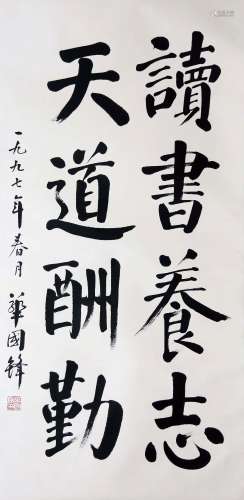 讀書養志
天道酬勤
一九九七年春月 華國鋒